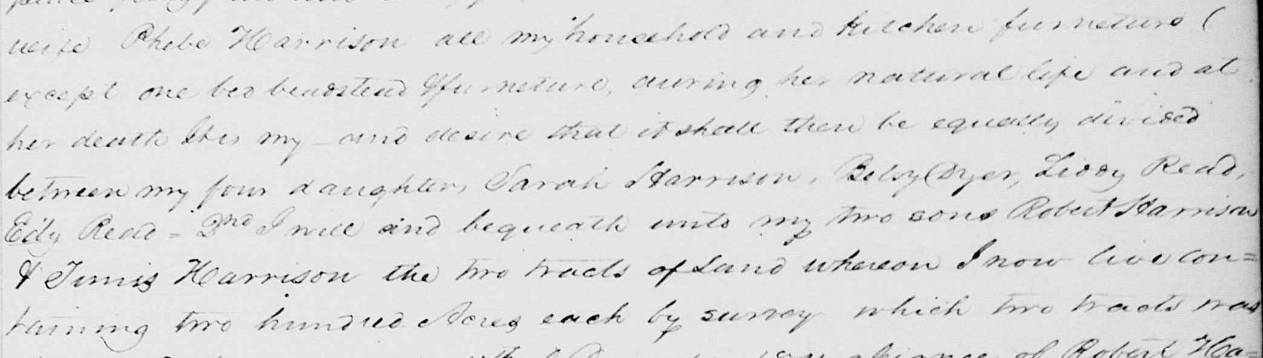 wife Phebe Harrison all my household and kitchen furneture (
except one bed beadstead & furneture, during her natural life and at
her death It is my - and desire that it shall then be equally divided
between my four daughters, Sarah Harrison, Betsy Dyer, Liddy Read,
Edy Read = 2nd I will and bequeath unto my two sons Robert Harrison
& Harrison the two tracts of Land whereon I now live con=
taining two hundred Acres each by survey which two tracts was
of Robert Ha=